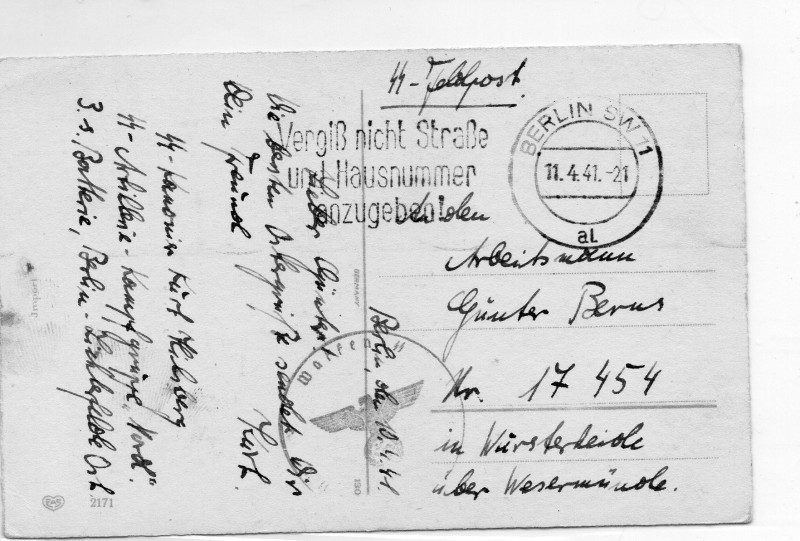 SS-Feldpost
BERLIN SW 11
11.4.41.-21
al
Vergiß nicht Straße
und Hausnummer
anzugeben!
An den
Arbeitsmann
Günter Berns
Nr. 17 454
in Wursterheide
über Wesermünde.
Berlin, den 10.4.41.
Lieber Günter!
Die besten Ostergrüße sendet Dir
Dein Freund
Kurt.
SS-Kanonier Kurt
SS-Artillerie-Kampfgruppe „Nord"
3. s. Batterie, Berlin-Lichterfelde Ost
GERMANY
130
2171